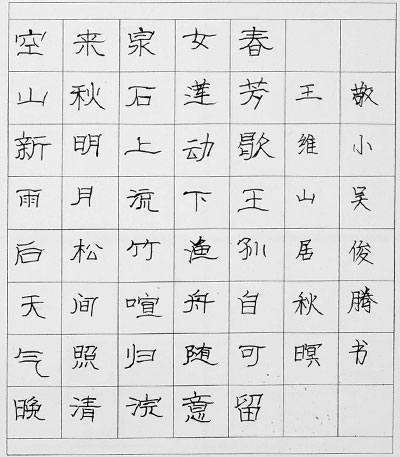 空山新雨后天气晚
来秋明月松间照清
泉石上流竹喧归浣
女莲动下渔舟随意
春芳歇王孙自可留
王维山居秋暝
敬小吴俊腾书